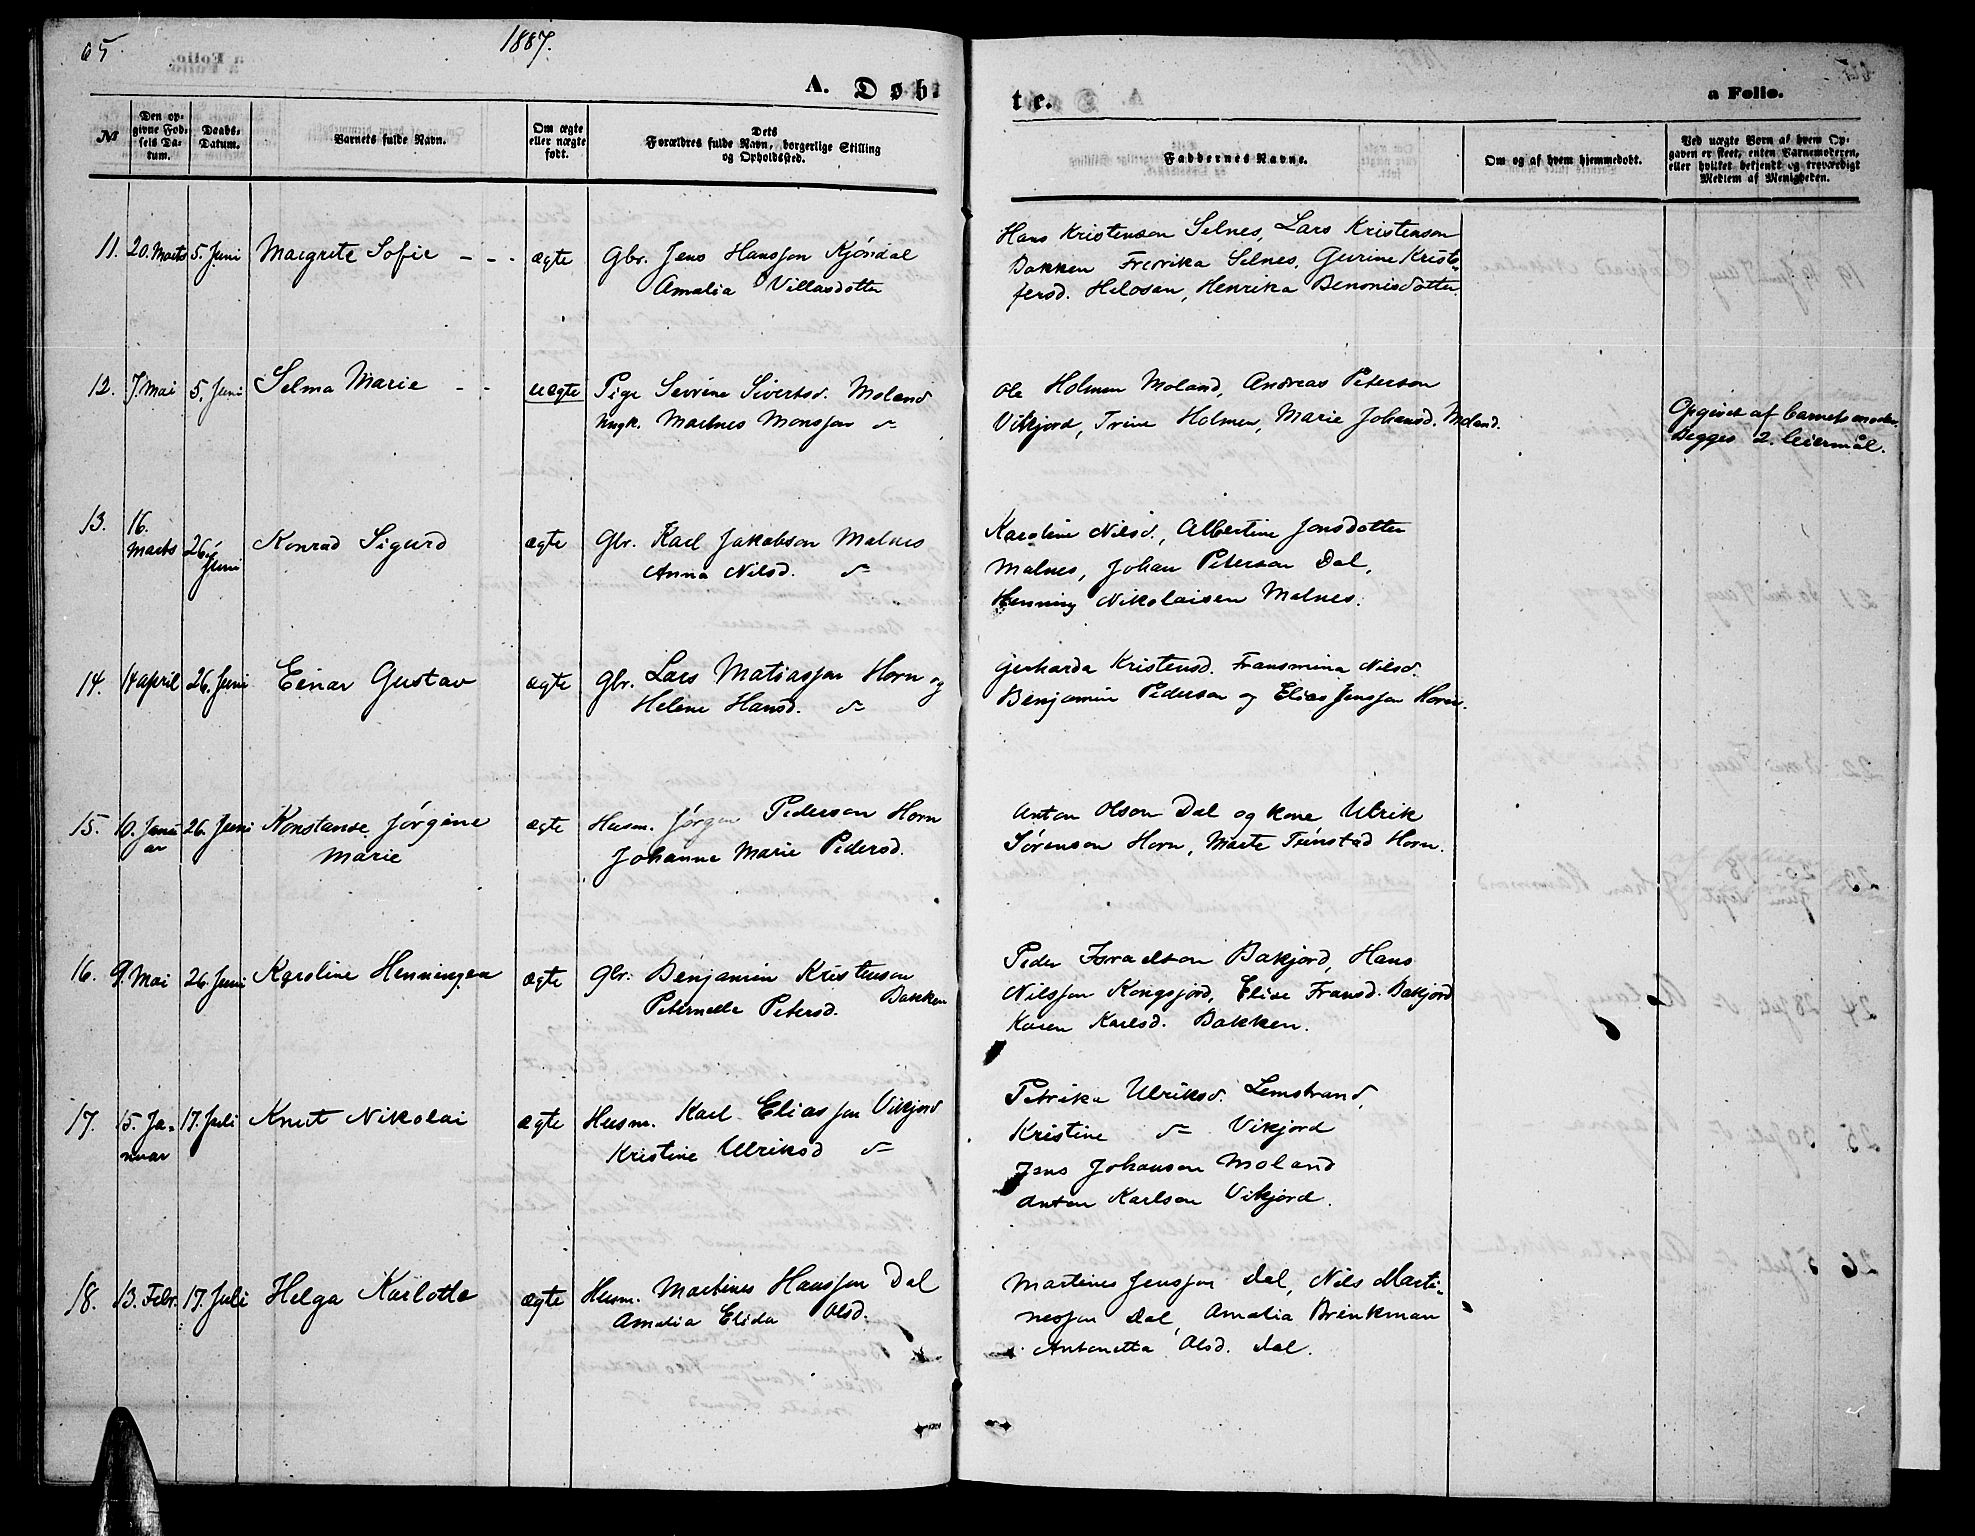 65
1887.
A. Døbte.
a Folio.
№
Den opgivne Fødsels Datum.
Daabs-Datum.
Barnets fulde Navn.
Om ægte eller uægte født.
Dets Forældres fulde Navn, borgerlige Stilling og Opholdssted.
Faddernes Navne.
Om og af hvem hjemmedøbt.
Ved uægte Børn af hvem Opgaven er skeet, enten Barnemoderen, eller hvilket bekjendt og troværdigt Medlem af Menigheden.
11. 20. Marts 5. Juni Margrete Sofie - - - ægte Gbr. Jens Hansson Kjørdal
Amalia Villasdotter
Hans Kristenson Selnes, Lars Kristenson
Bakken Fredrika Selnes, Gurine Kristo-
fersd. Henrika Benonisdotter.
12. 7. Mai 5. Juni Selma Marie - - uægte Pige Sevrine Sivertsd. Moland
Ungk. Martnes Monsson do
Ole Holmen Moland, Andreas Peterson
Vikjord, Trine Holmen, Marie Johansd. Moland.
Opgivet af barnets moder.
Begges 2. leiermål.
13. 16. Marts 26. Juni Konrad Sigurd ægte Gbr. Karl Jakobson Malnes
Anna Nilsd. do
Karoline Nilsd., Albertine Jonsdotter
Malnes, Johan Peterson Dal,
Henning Nikolaisen Malnes.
14. 14 april 26. Juni Einar Gustav ægte Gbr. Lars Matiasson Horn og
Helene Hansd. do
Gerharda Kristensd. Fransmina Nilsd.
Benjamin Pederson og Elias Jensson Horn.
15. 10. Januar 26. Juni Konstanse Jørgine
Marie
ægte Husm. Jørgen Pederson Horn
Johanna Marie Pedersd.
Anton Olson Dal og kone Ulrik
Sørenson Horn, Marte Tunstad Horn.
16. 9. Mai 26. Juni Karoline Henningea ægte Gbr. Benjamin Kristenson
Peternelle Petersd. Bakken
Peder Israelson Bakjord, Hans
Nilsson Kongsjord, Elise Fransd. Bakjord
Karen Karlsd. Bakken.
17. 15. Januar 17. Juli Knut Nikolai ægte Husm. Karl Eliasson Vikjord
Kristine Ulriksd do
Petrika Ulriksd. Lemstrand,
Kristine do Vikjord
Jens Johanson Moland
Anton Karlson Vikjord.
18. 13. Febr. 17. Juli Helga Karlotte ægte Husm. Martines Hansson Dal
Amalia Elida Olsd.
Martines Jensson Dal, Nils Marti-
nesson Dal, Amalia Brinkman
Antonetta Olsd. Dal.